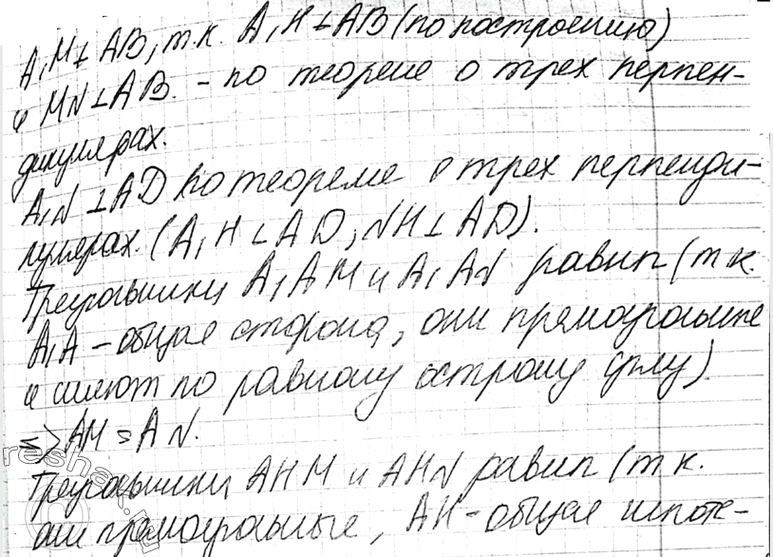 A₁M⊥AB, т.к. A₁H⊥AB (по построению)
и MN⊥AB. - по теореме о трех перпен-
дикулярах.
A₁N⊥AD по теореме о трех перпенди-
кулярах. (A₁H⊥AD, NH⊥AD).
Треугольники A₁AM и A₁AN равны (т.к.
A₁A - общая сторона, они прямоугольные
и имеют по равному острому углу)
=> AM = AN.
Треугольники AHM и AHN равны (т.к.
они прямоугольные, AH - общая гипоте-